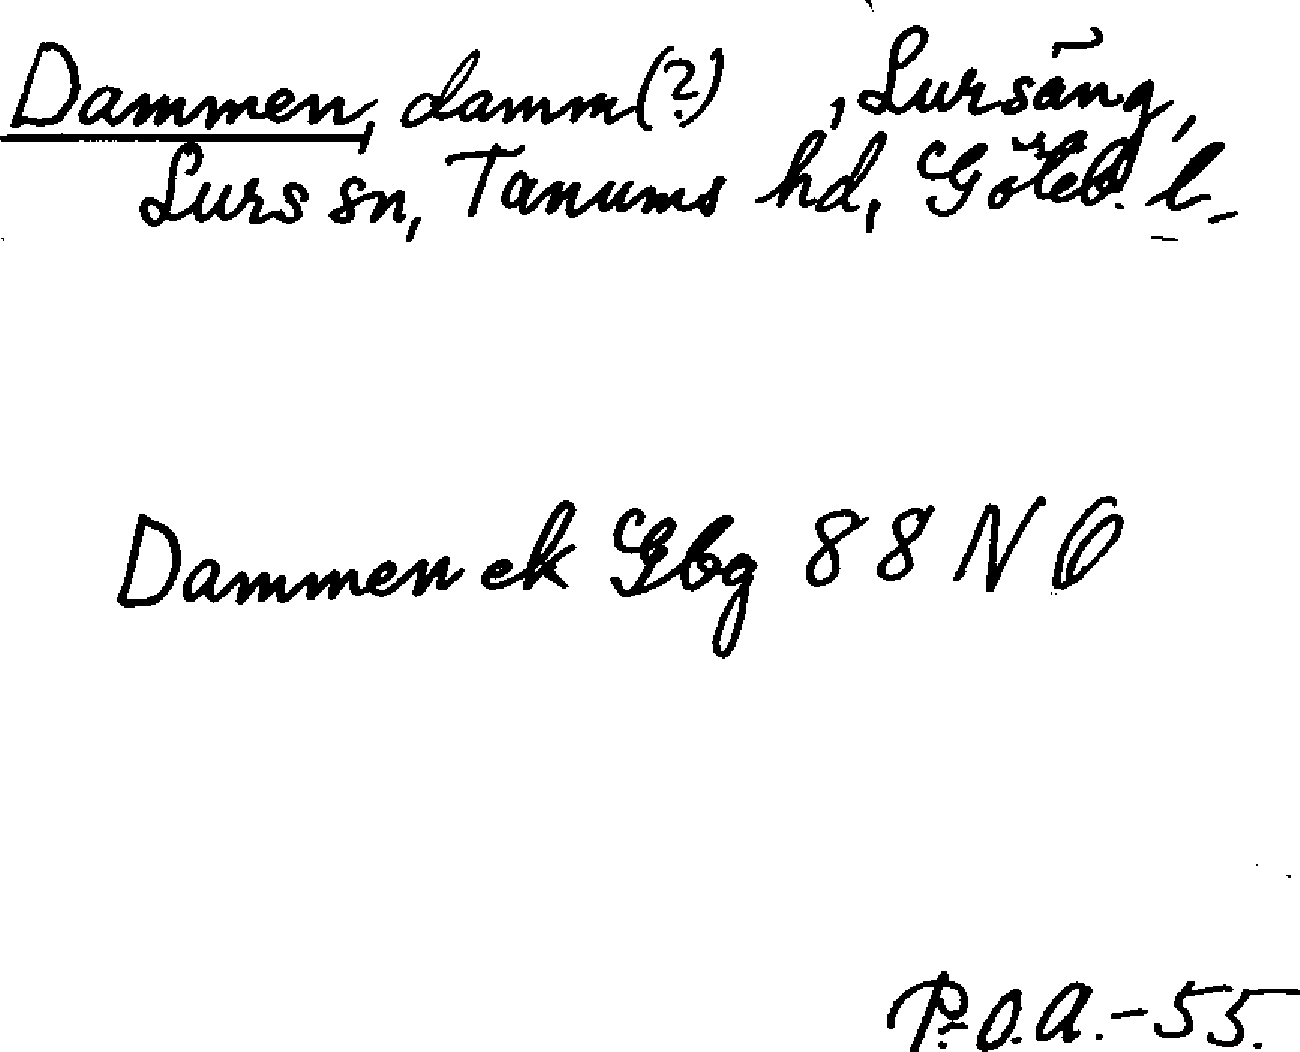 Dammen, damm(?) , Lursäng,
Lurs sn, Tanums hd, Göteb. l.
Dammen ek Gbg 88 NO
P.-O.A.-55.